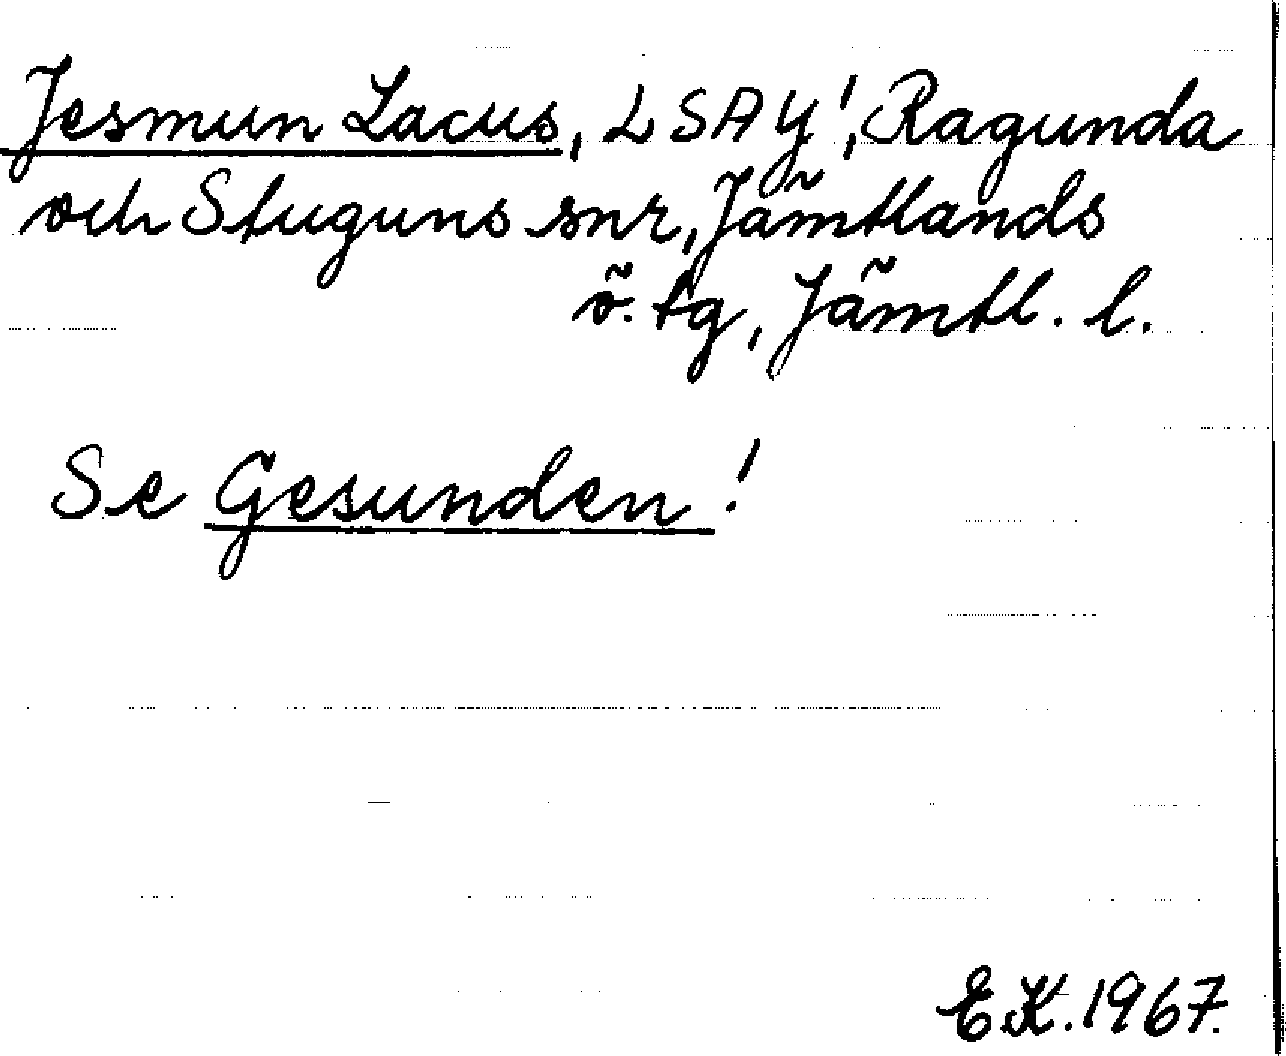 Jesmun Lacus, LSAY!, Ragunda
och Stuguns snr, Jämtlands
ö. tg, Jämtl. l.
Se Gesunden!
E.K. 1967.